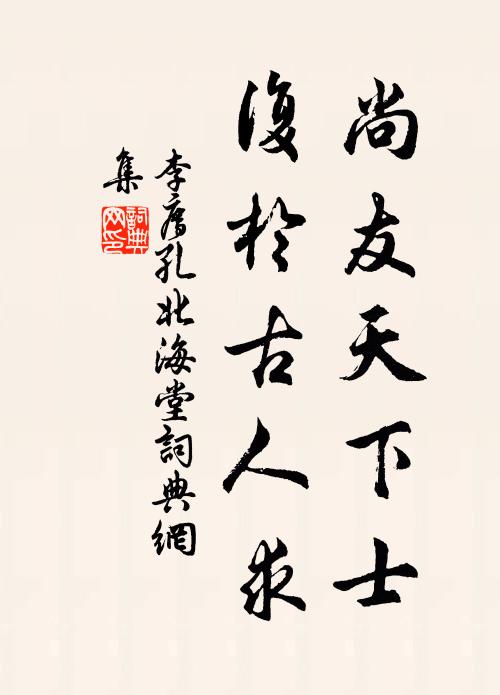 尚友天下士
復於古人求
李廌孔北海堂詞典網
集
詞典
网印